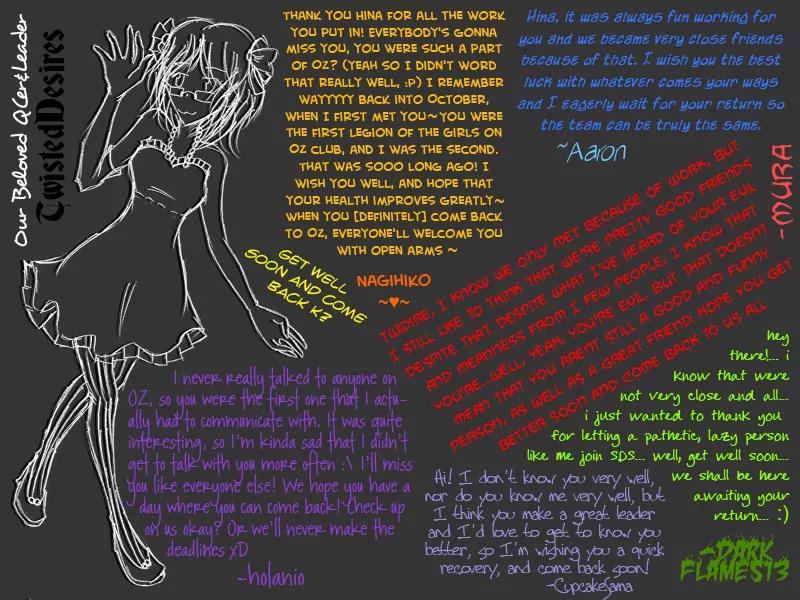 Our Beloved QCer&Leader
TwistedDesires
THANK YOU HINA FOR ALL THE WORK
YOU PUT IN! EVERYBODY'S GONNA
MISS YOU, YOU WERE SUCH A PART
OF OZ? (YEAH SO I DIDN'T WORD
THAT REALLY WELL, :P) I REMEMBER
WAYYYYY BACK INTO OCTOBER,
WHEN I FIRST MET YOU~YOU WERE
THE FIRST LEGION OF THE GIRLS ON
OZ CLUB, AND I WAS THE SECOND.
THAT WAS SOOO LONG AGO! I
WISH YOU WELL, AND HOPE THAT
YOUR HEALTH IMPROVES GREATLY~
WHEN YOU [DEFINITELY] COME BACK
TO OZ, EVERYONE'LL WELCOME YOU
WITH OPEN ARMS ~
NAGIHIKO
~♥~
Hina, it was always fun working for
you and we became very close friends
because of that. I wish you the best
luck with whatever comes your ways
and I eagerly wait for your return so
the team can be truly the same.
~Aaron
GET WELL
SOON AND COME
BACK K?
TWIDIRE, I KNOW WE ONLY MET BECAUSE OF WORK, BUT
I STILL LIKE TO THINK THAT WE'RE PRETTY GOOD FRIENDS
DESPITE THAT. DESPITE WHAT I'VE HEARD OF YOUR EVIL
AND MEANNESS FROM A FEW PEOPLE, I KNOW THAT
YOU'RE...WELL, YEAH, YOU'RE EVIL. BUT THAT DOESNT
MEAN THAT YOU ARENT STILL A GOOD AND FUNNY
PERSON, AS WELL AS A GREAT FRIEND. HOPE YOU GET
BETTER SOON AND COME BACK TO US ALL
-MURA
I never really talked to anyone on
OZ, so you were the first one that I actu-
ally had to communicate with. It was quite
interesting, so I'm kinda sad that I didn't
get to talk with you more often :\ I'll miss
you like everyone else! We hope you have a
day where you can come back! Check up
on us okay? Or we'll never make the
deadlines xD
-holanio
hey
there!... i
know that were
not very close and all...
i just wanted to thank you
for letting a pathetic, lazy person
like me join SDS... well, get well soon...
we shall be here
awaiting your
return... :)
~DARK
FLAMES13
Hi! I don't know you very well,
nor do you know me very well, but
I think you make a great leader
and I'd love to get to know you
better, so I'm wishing you a quick
recovery, and come back soon!
-CupcakeSama